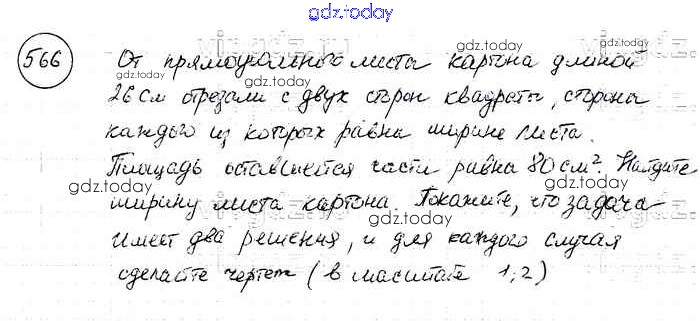 gdz.today
566 От прямоугольного листа картона длиной
26 см отрезали с двух сторон квадраты, стороны
каждого из которых равна ширине листа.
Площадь оставшейся части равна 80 см². Найдите
ширину листа картона. Покажите, что задача
имеет два решения, и для каждого случая
сделайте чертеж (в масштабе 1:2)